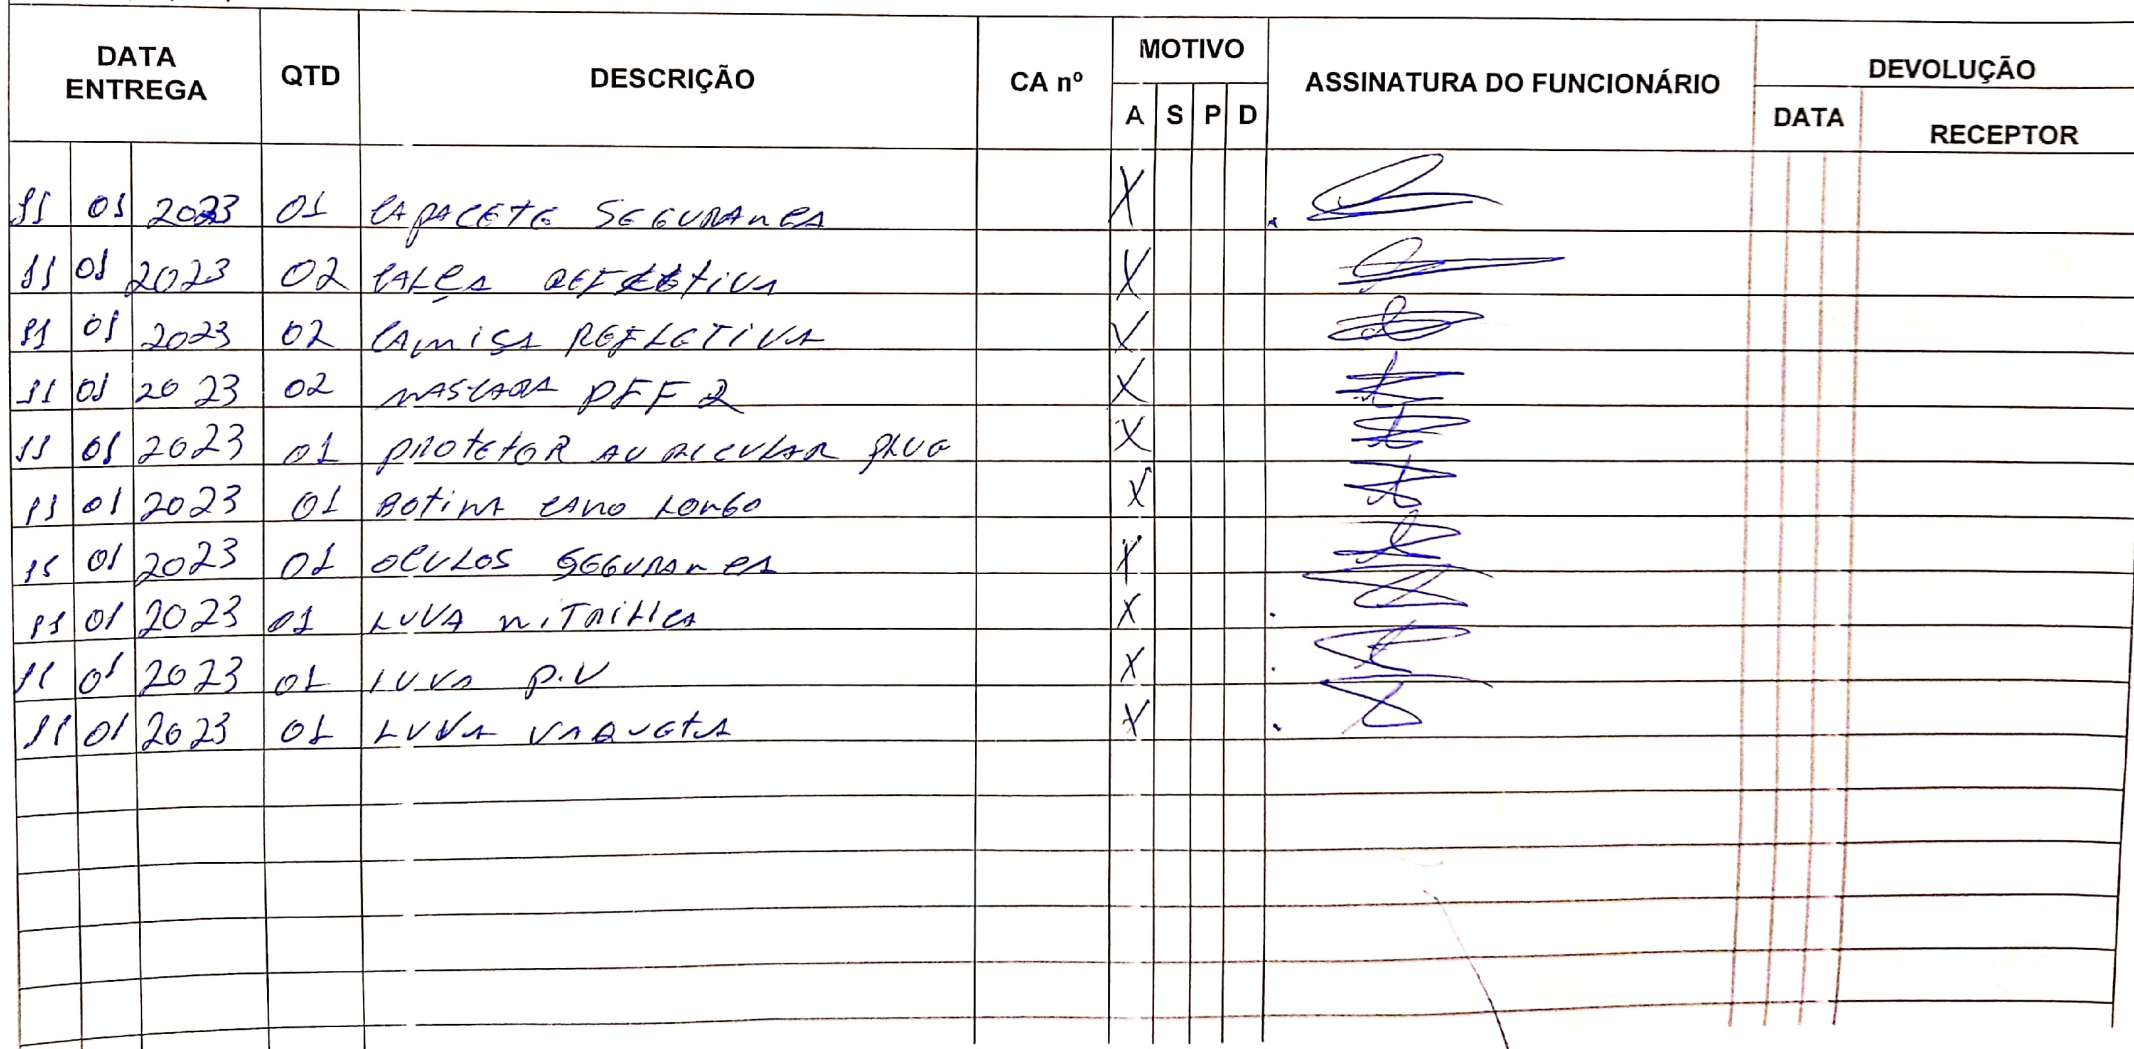 DATA ENTREGA QTD DESCRIÇÃO CA nº MOTIVO ASSINATURA DO FUNCIONÁRIO DEVOLUÇÃO
A S P D DATA RECEPTOR
11 01 2023 01 CAPACETE SEGURANCA X
11 01 2023 02 CALÇA REFLETIVA X
11 01 2023 02 CAMISA REFLETIVA X
11 01 2023 02 MASCARA PFF 2 X
11 01 2023 01 PROTETOR AURICULAR PLUG X
11 01 2023 01 BOTINA CANO LONGO X
11 01 2023 01 OCULOS SEGURANCA X
11 01 2023 01 LUVA NITRILICA X
11 01 2023 01 LUVA P.V X
11 01 2023 01 LUVA VAQUETA X